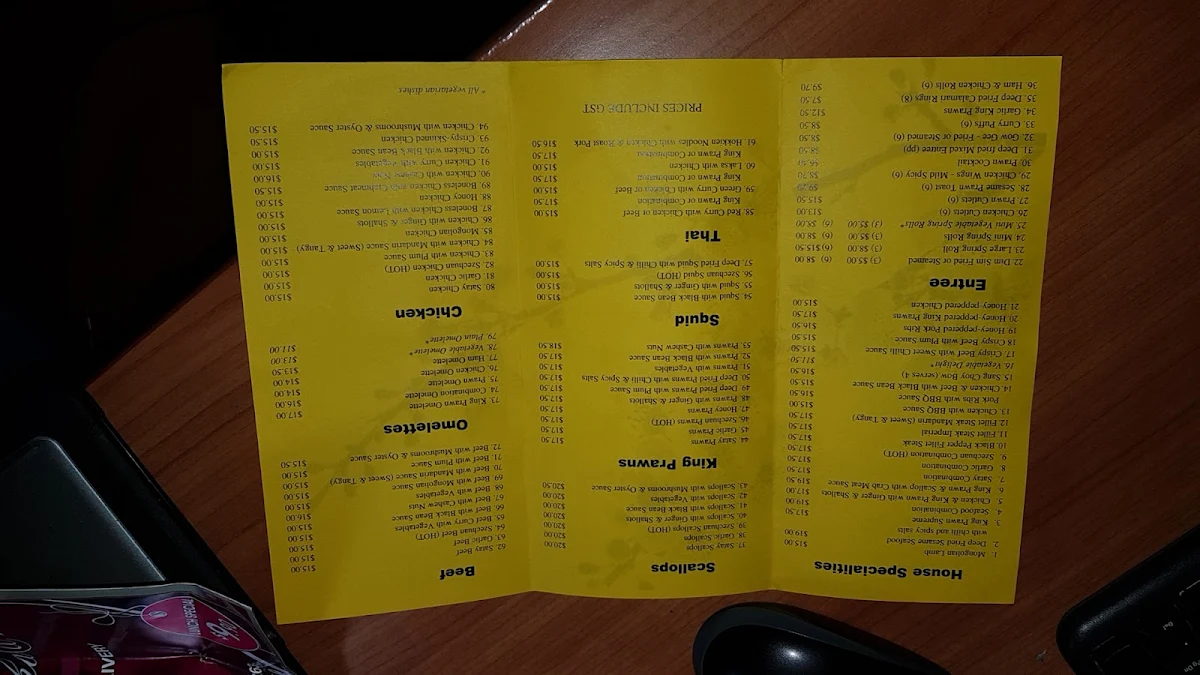 House Specialities
1. Mongolian Lamb $15.00
2. Deep Fried Sesame Seafood
with chilli and spicy salts $19.00
3. King Prawn Supreme $17.50
4. Seafood Combination $19.00
5. Chicken & King Prawn with Ginger & Shallots $17.00
6. King Prawn & Scallop with Crab Meat Sauce $17.50
7. Satay Combination $17.50
8. Garlic Combination $17.50
9. Szechuan Combination (HOT) $17.50
10. Black Pepper Fillet Steak $17.50
11. Fillet Steak Imperial $17.50
12. Fillet Steak Mandarin (Sweet & Tangy) $17.50
13. Chicken with BBQ Sauce $15.00
Pork Ribs with BBQ Sauce $15.50
14. Chicken & Beef with Black Bean Sauce $15.50
15. Sang Choy Bow (serves 4) $16.50
16. Vegetable Delight* $11.50
17. Crispy Beef with Sweet Chilli Sauce $15.50
18 Crispy Beef with Plum Sauce $15.50
19. Honey-peppered Pork Ribs $16.50
20. Honey-peppered King Prawns $17.50
21. Honey-peppered Chicken $15.00
Entree
22. Dim Sum Fried or Steamed (3) $5.00 (6) $8.00
23. Large Spring Roll (3) $8.00 (6) $15.50
24 Mini Spring Rolls (3) $5.00 (6) $8.00
25. Mini Vegetable Spring Rolls* (3) $5.00 (6) $8.00
26. Chicken Cutlets (6) $13.00
27. Prawn Cutlets $15.50
28. Sesame Prawn Toast (6)
29. Chicken Wings - Mild Spicy (6) $8.70
30. Prawn Cocktail $6.50
31. Deep fried Mixed Entree (pp) $8.50
32. Gow Gee - Fried or Steamed (6) $8.50
33. Curry Puffs (6) $8.50
34. King Garlic Prawns $12.50
35. Deep Fried Calamari Rings (8) $7.50
36. Ham & Chicken Rolls (6) $9.70
Scallops
37. Satay Scallops $20.00
38. Garlic Scallops $20.00
39. Szechuan Scallops (HOT) $20.00
40. Scallops with Ginger & Shallots $20.00
41. Scallops with Black Bean Sauce $20.00
42. Scallops with Vegetables $20.00
43. Scallops with Mushrooms & Oyster Sauce $20.50
King Prawns
44 Satay Prawns $17.50
45. Garlic Prawns $17.50
46. Szechuan Prawns (HOT) $17.50
47. Honey Prawns $17.50
48. Prawns with Ginger & Shallots $17.50
49. Deep Fried Prawns with Plum Sauce $17.50
50 Deep Fried Prawns with Chilli & Spicy Salts $17.50
51. Prawns with Vegetables $17.50
52. Prawns with Black Bean Sauce $17.50
53. Prawns with Cashew Nuts $18.50
Squid
54. Squid with Black Bean Sauce $15.00
55. Squid & Ginger & Shallots $15.00
56. Szechuan Squid (HOT) $15.00
57. Deep Fried Squid with Chilli & Spicy Salts $15.00
Thai
58. Red Curry with Chicken or Beef $15.00
King Prawn or Combination $17.50
59. Green Curry with Chicken or Beef $15.00
King Prawn or Combination $17.50
60. Laksa with Chicken $15.00
King Prawn or Combination $17.50
61. Hokkien Noodles with Chicken & Roast Pork $16.50
PRICES INCLUDE GST
Beef
62. Satay Beef $15.00
63. Garlic Beef $15.00
64. Szechuan Beef (HOT) $15.00
65. Beef Curry with Vegetables $15.00
66. Beef with Black Bean Sauce $15.00
67. Beef with Cashew Nuts $16.00
68. Beef with Vegetables $15.00
69. Beef with Mongolian Sauce $15.00
70. Beef with Mandarin Sauce (Sweet & Tangy) $15.50
71. Beef with Plum Sauce $15.00
72. Beef with Mushrooms & Oyster Sauce $15.50
Omelettes
73. King Prawn Omelette $17.00
74. Combination Omelette $16.00
75. Prawn Omelette $14.00
76. Chicken Omelette $14.00
77. Ham Omelette $13.50
78. Vegetable Omelette* $13.00
79. Plain Omelette* $11.00
Chicken
80. Satay Chicken $15.00
81. Garlic Chicken $15.00
82. Szechuan Chicken (HOT) $15.00
83. Chicken with Plum Sauce $15.50
84. Chicken with Mandarin Sauce (Sweet & Tangy) $15.50
85. Mongolian Chicken $15.00
86. Chicken with Ginger & Shallots $15.00
87. Boneless Chicken with Lemon Sauce $15.50
88. Honey Chicken $15.00
89. Boneless Chicken with Crabmeat Sauce $15.50
90. Chicken with Cashew Nuts $16.00
91. Chicken Curry with vegetables $15.00
92. Chicken with Black Bean Sauce $15.00
93. Crispy-Skinned Chicken $15.50
94. Chicken with Mushrooms & Oyster Sauce $15.50
* All vegetarian dishes
LUNCH SPECIAL